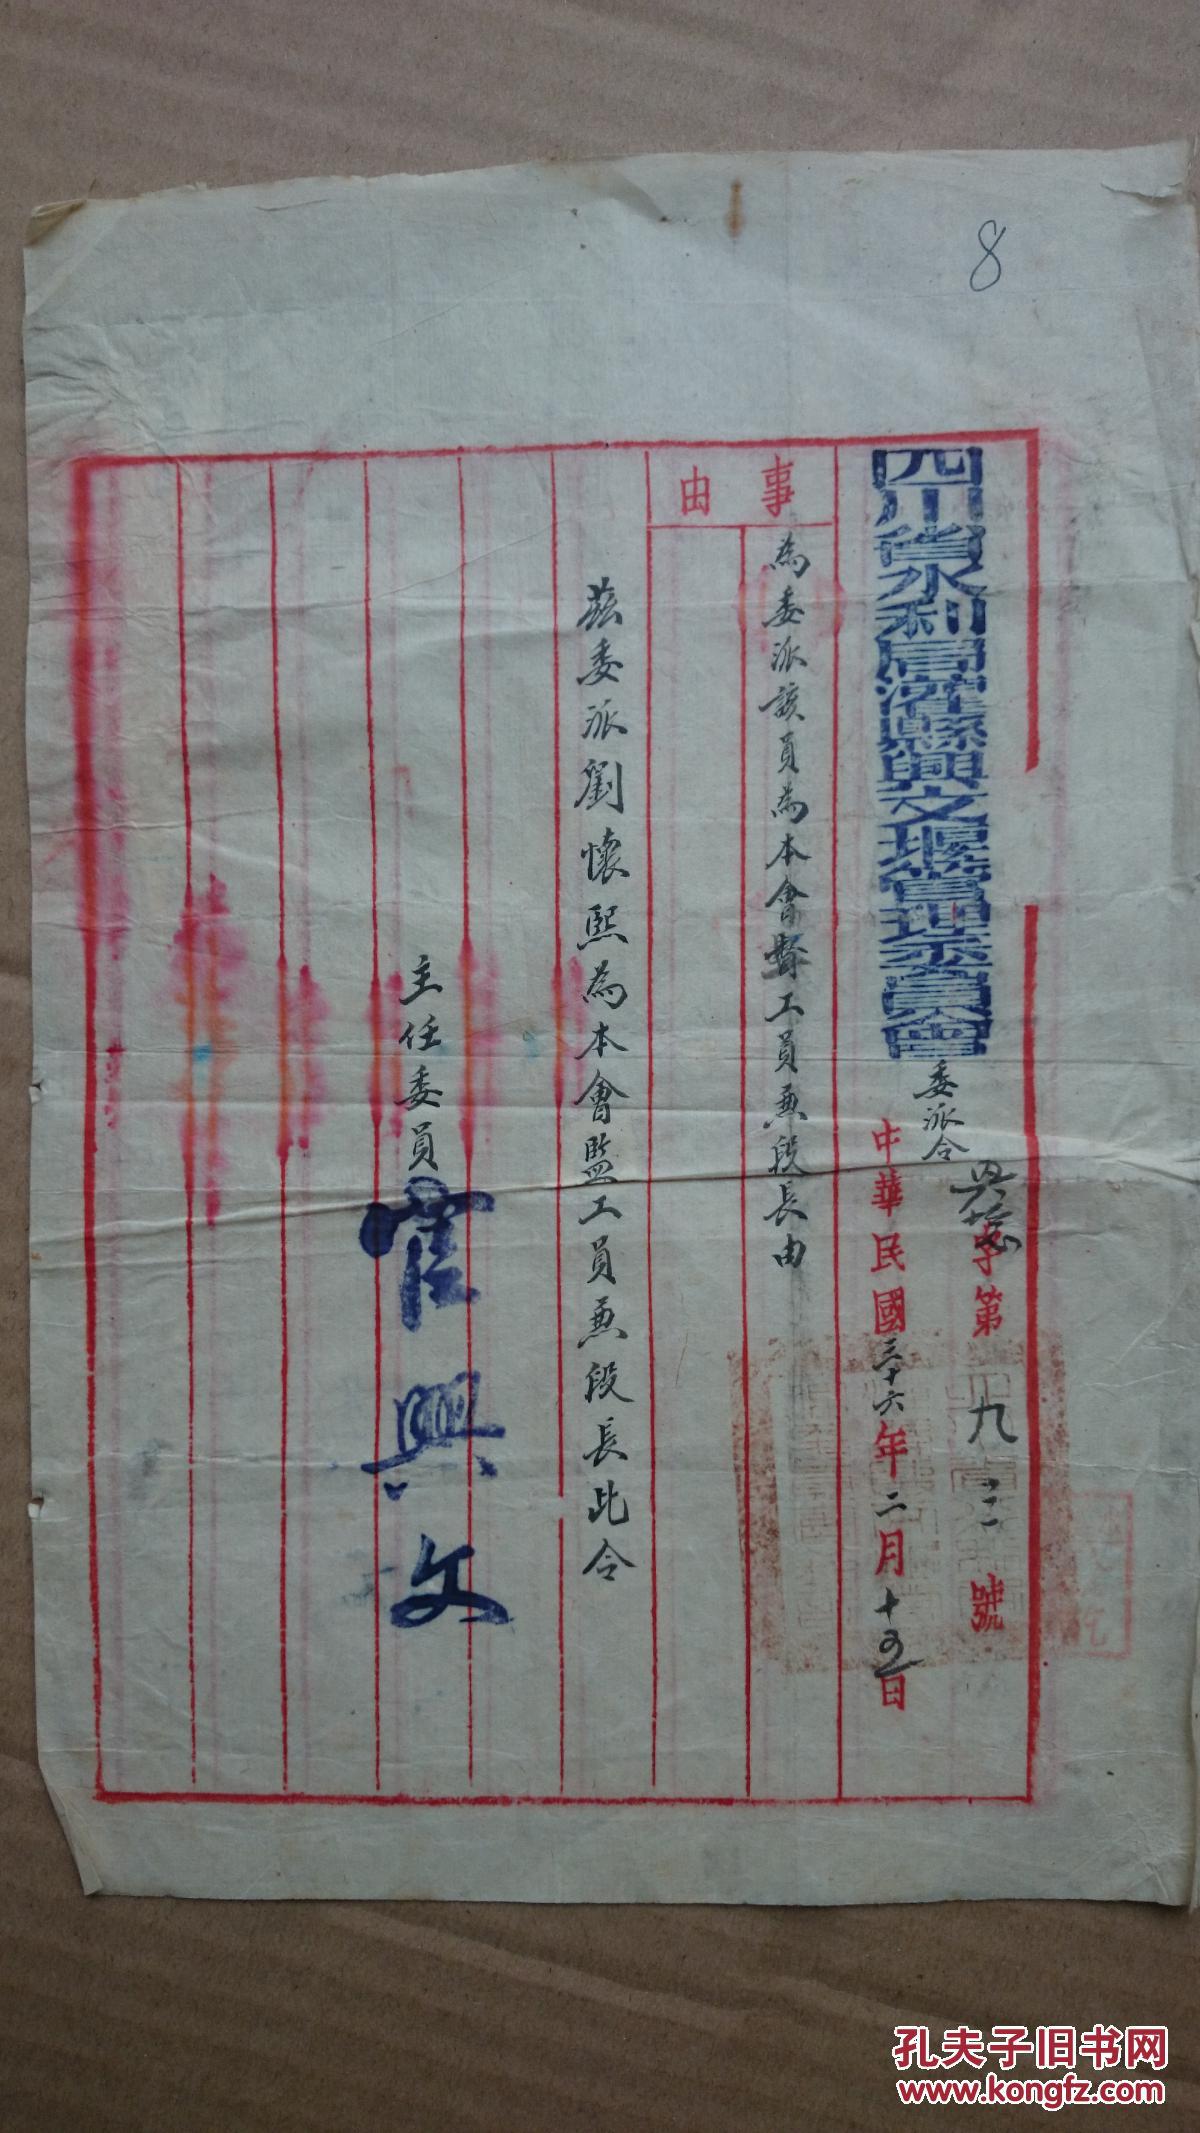 8
四川省水利局灌縣興文堰管理委員會委派令
興總字第九三號
中華民國三十六年二月十五日
事由
為委派該員為本會督工員兼段長由
茲委派劉懷熙為本會監工員兼段長此令
主任委員官興文
孔夫子旧书网
www.kongfz.com